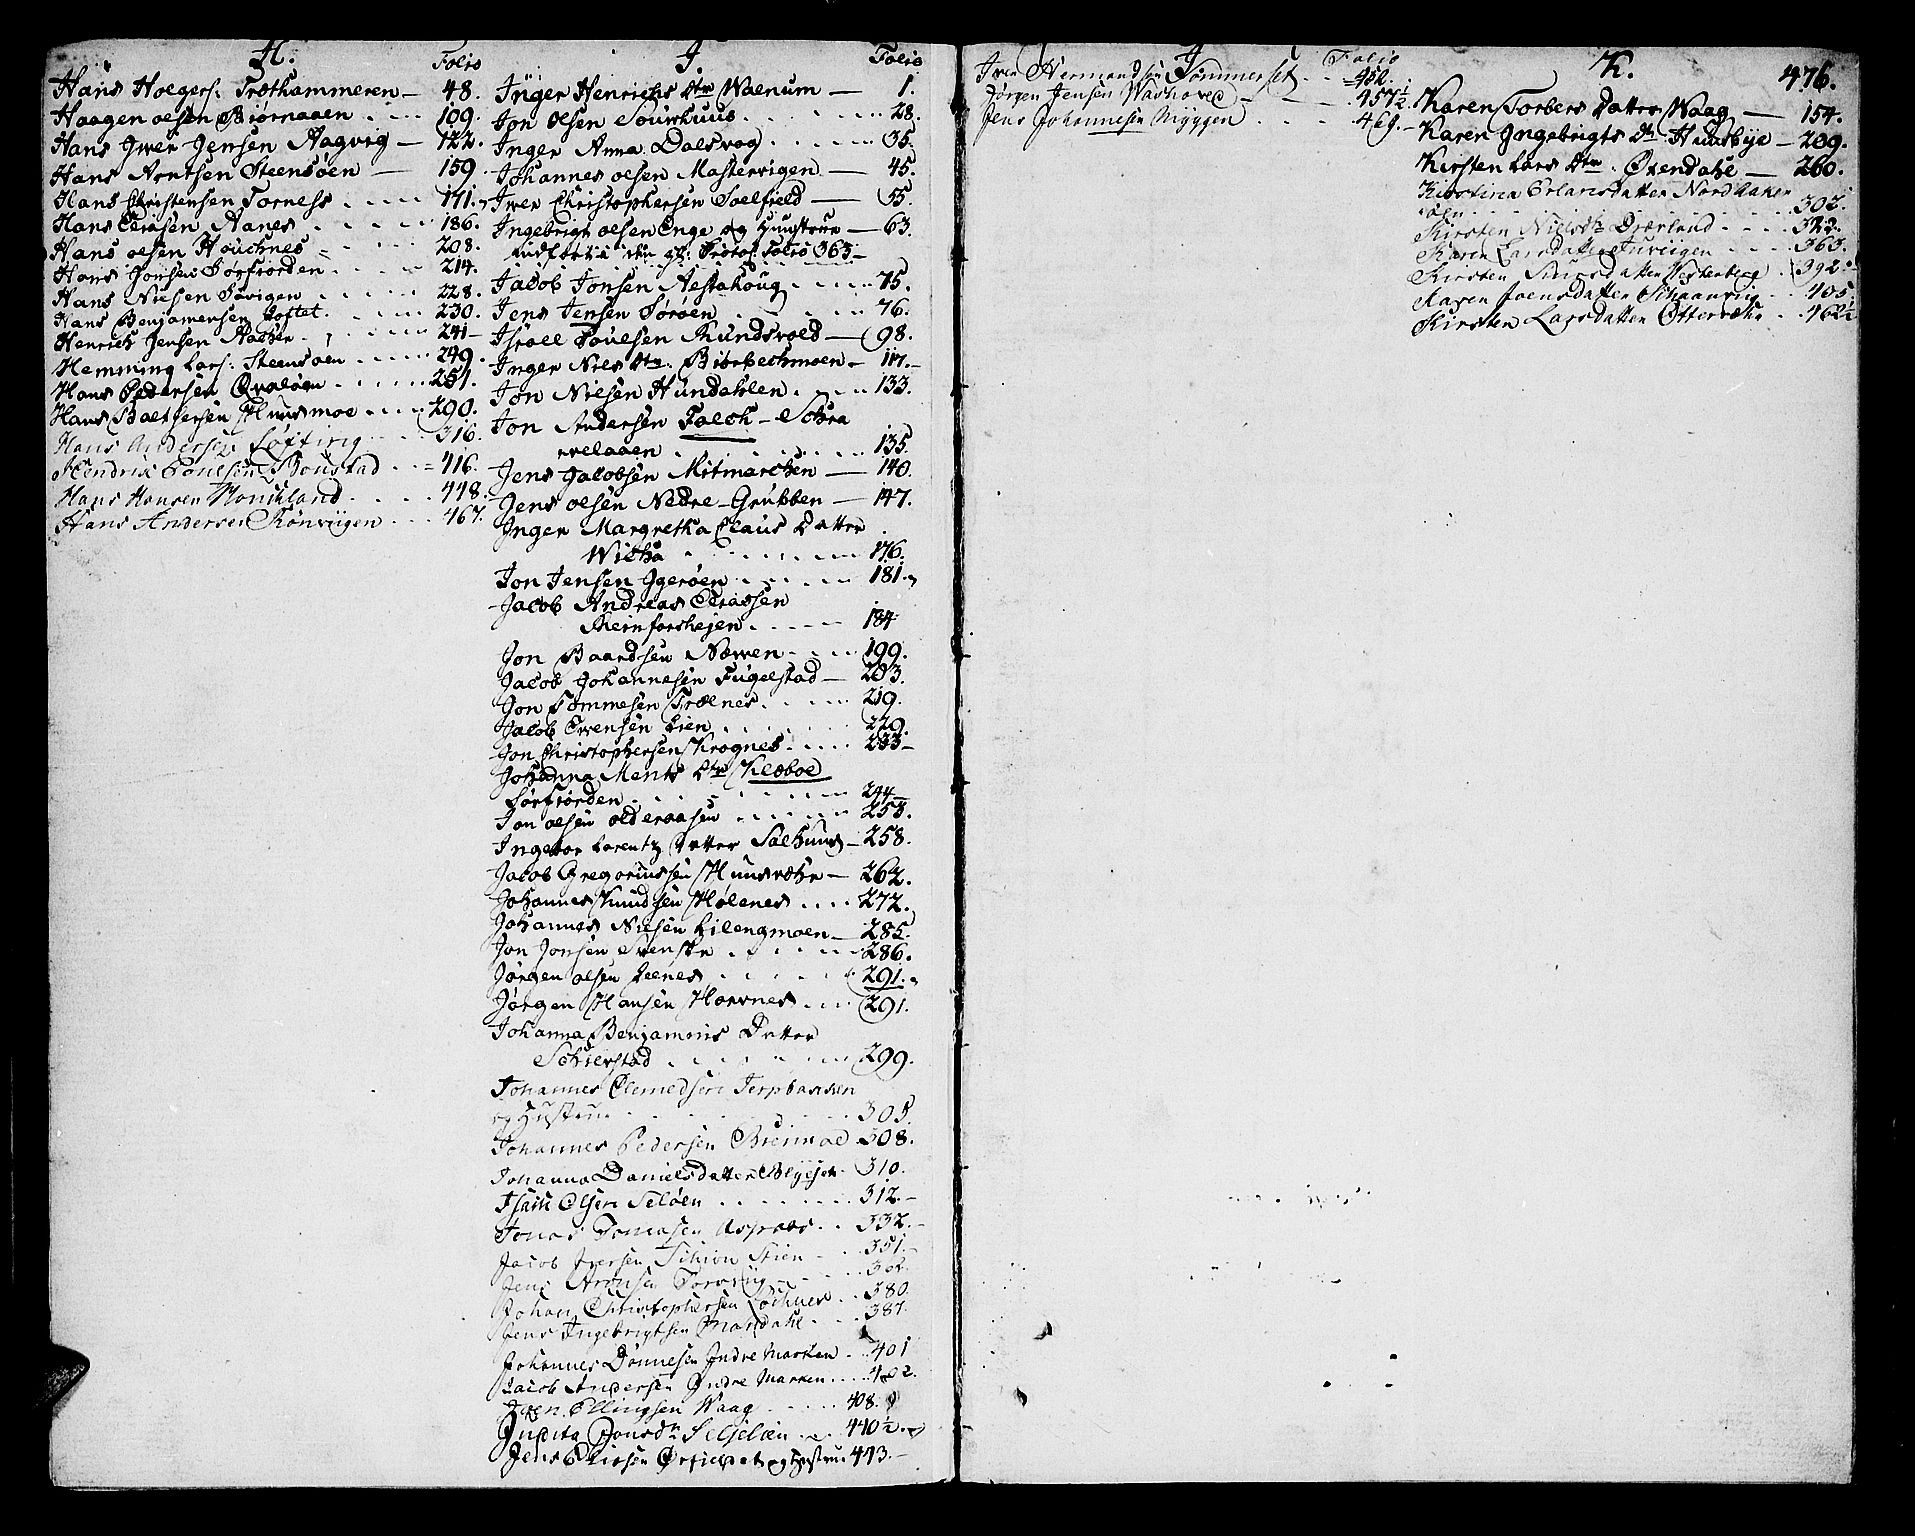 H. Folio
Hans Holgers: Trothammeren — 48.
Haagen olsen Biørnaaen 109.
Hans Iwer Jensen Aagvig — 122.
Hans Arntsen Steensøen — 159.
Hans Christensen Torness 171.
Hans Eriasen Aanes 186.
Hans olsen Houchnes 208.
Hans Jonsen Sørfiorden 214.
Hans Nielsen Sørigen 228.
Hans Benjamensen Toftet 230.
Henrich Jensen Aacher 241
Hemming Lars: Steensøen 249.
Hans Pedersen Qvaløen 251.
Hans Balthersen Huusmoe 290.
Hans Andersen Løfting 316.
Hendrik Poulsen Boustad 416.
Hans Hansen Houchland 448.
Hans Andersen Rønviigen 467.
J. Folio
Inger Henrichs dtr Walnum — 1.
Jon olsen Souvhuus 28.
Inger Anna Dalsvog 35.
Johannes olsen Mastervigen — 45.
Iwer Christophersen Soelfield — 55.
Ingebrigt olsen Enge og Huustrue — 63.
Protoc: Folio 363
Jacob Jonsen Aestahoug 75.
Jens Jensen Sørøen 76.
Israel Poulsen Rundsvold — 98.
Inger Niels dtr Biørbechmoen — 117.
Jon Nielsen Hundahlen 133.
Jon Andersen Falch - Schra
velaaen 135.
Jens Jacobsen Mitmarchen — 140.
Jens olsen Nedre-Grubben — 147.
Inger Margretha Claus Datter
Wicha 176.
Jon Jensen Ygerøen 181.
Jacob Andreas Eriassen
Reinforshejen 184
Jon Baardsen Nerven 199.
Jacob Johannesen Fugelstad — 203.
Jon Tommesen Trælnes 219.
Jacob Ewensen Lien 229.
Jon Christophersen Krognes 233
Johanna Ments dtr Klæboe
Sørfiorden 244
Jon olsen olderaasen 258.
Ingebor Lorentz datter Salhuus — 258.
Jacob Gregoriussen Huusvæhr — 262.
Johannes Knudsen Holenes 272.
Johannes Nielsen Lilengmoen — 285.
Jon Jonsen Svenske 286.
Jørgen olsen Leenes 291.
Jørgen Hansen Horvnes 291.
Johanna Benjamins Datter
Schierstad 299.
Johannes Clemedsen Terpbaschen
og Hustrue 305.
Johannes Pedersen Breimoe 308.
Johanna Danielsdatter 310.
Isach Olsen Seløen 312.
Jonas Tomasen Aspaas 332.
Jacob Iversen Schion Stien 351.
Jens Aronsen Torvviig
Johan Christophersen Lochnes 380.
Jens Ingebrigtsen Mandahl 387.
Johannes Dønnesen Indre Marken 401
Jacob Andersen Indre Marken 402.
Ellingsen Waag 408.
Indita Jonsdr Selsøen 440½
Jens og Hustrue 443.
J. Folio
Iver Hermandsen Sommerset 452.
Jørgen Jensen Navhovd 457½
Jens Johannesen Myggen 469.
K. 476.
Karen Torbers Datter Waag — 154.
Karen Ingebrigts dtr Huusbye — 209.
Kirsten Lars dtr Oxendahl — 260.
Kirstina Erlansdatter Nord Aaker
søen 302.
Kirsten Niels dr Dverland 322.
Karen Larsdatter 363.
Kirsten Simensdatter Westerberg 392.
Karen Joensdatter Schaanvig 405
Kirsten Larsdatter Ottervæhr 462½